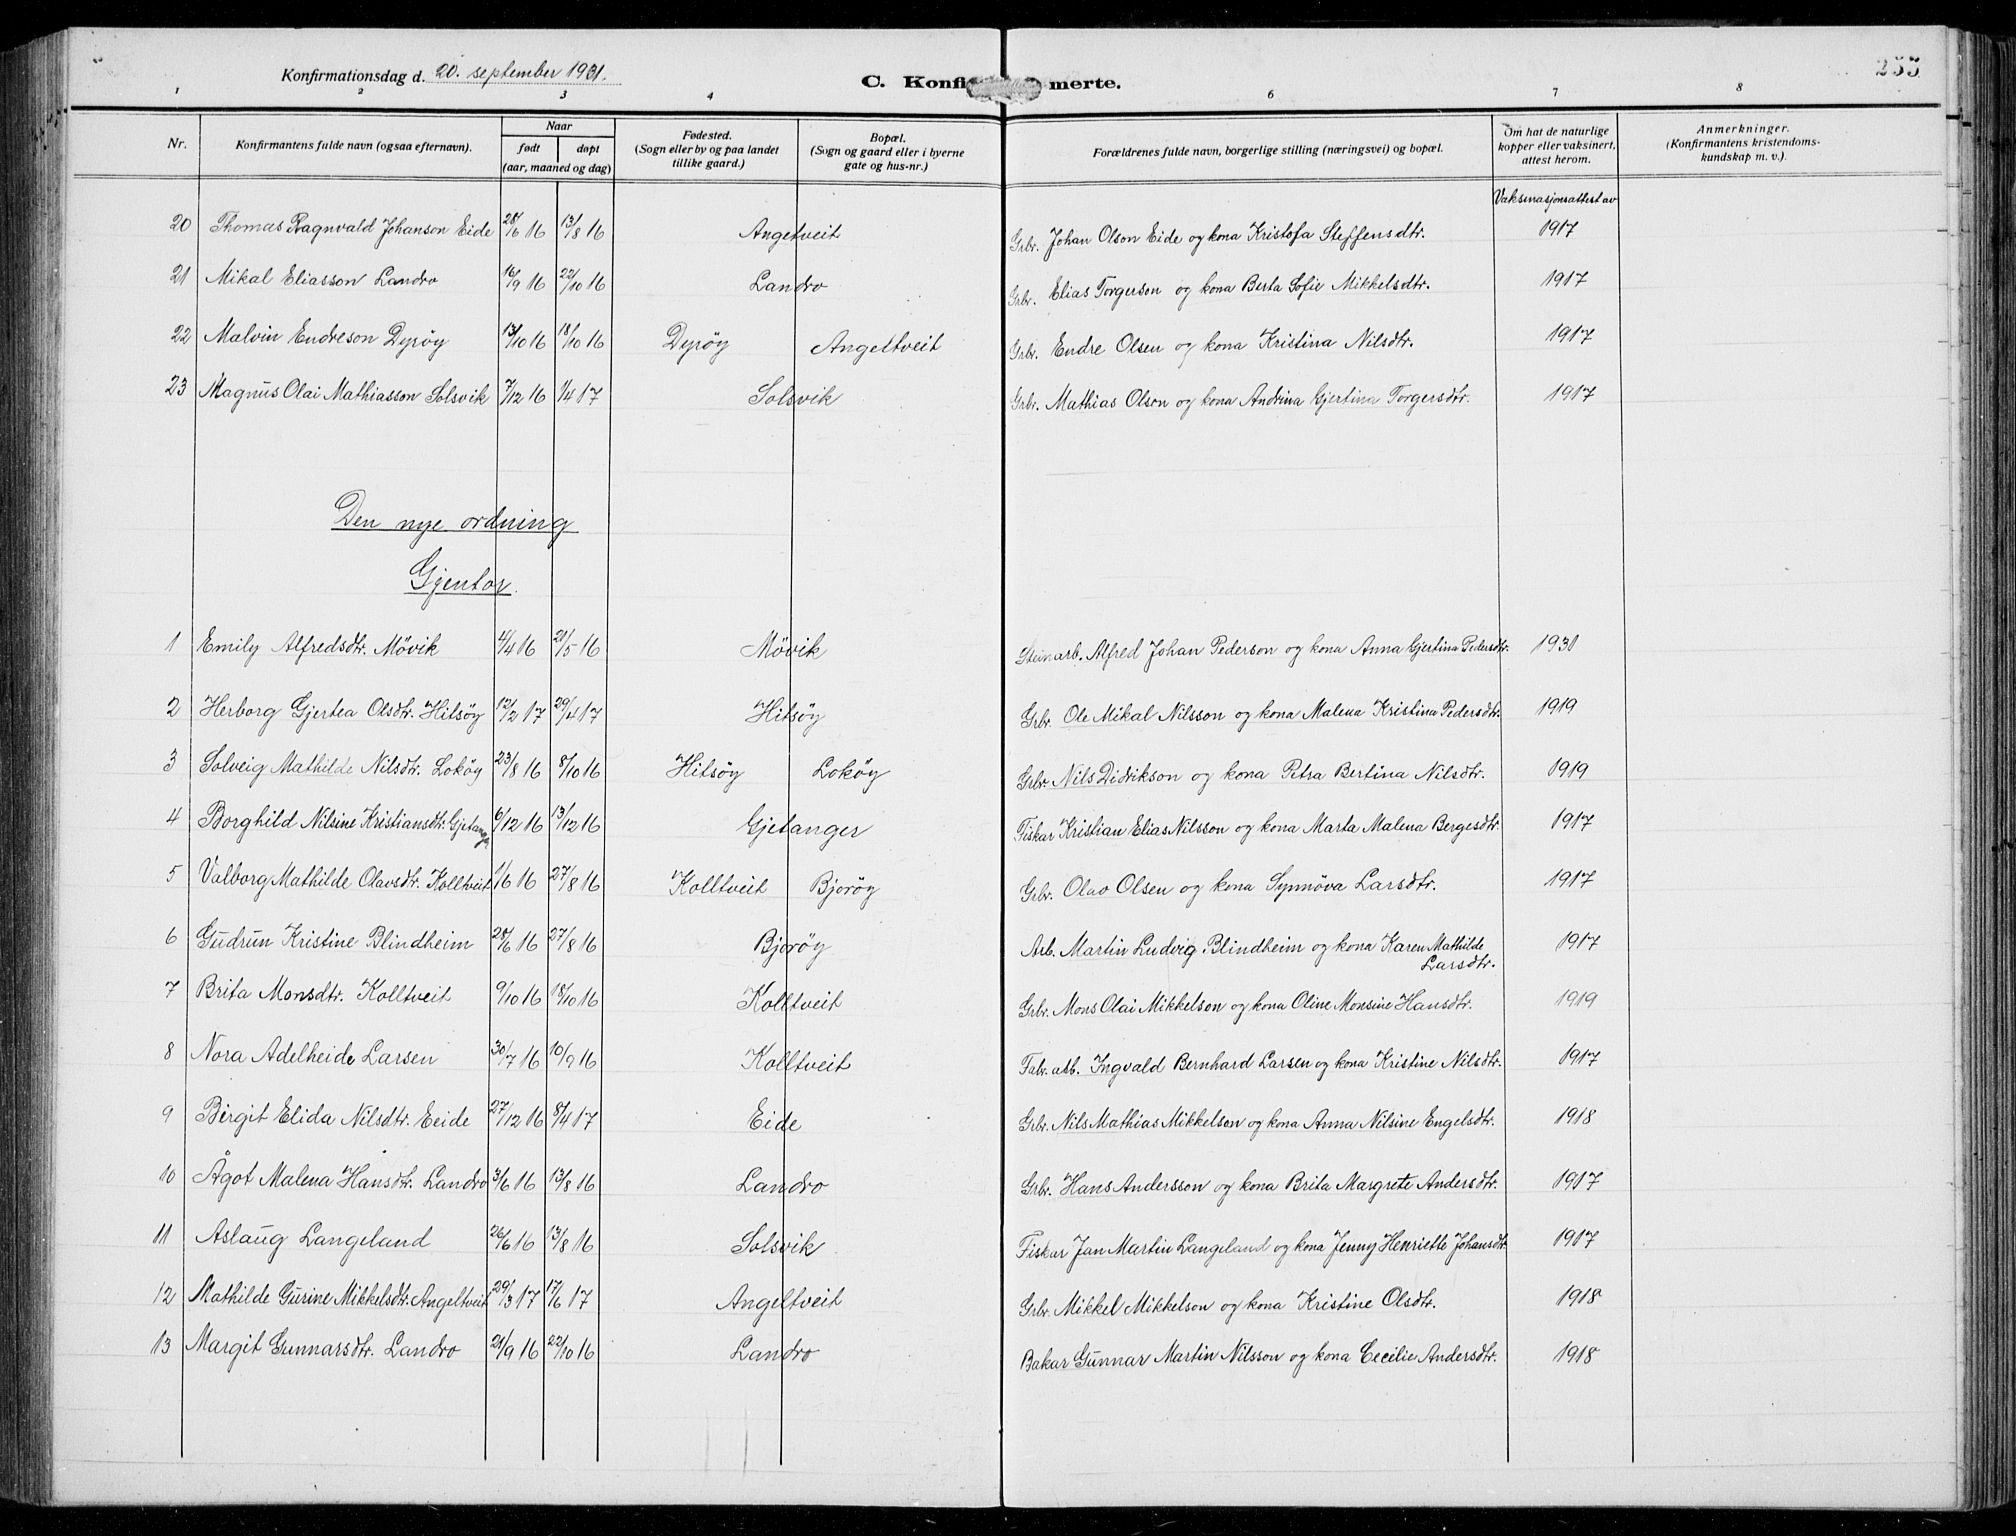 Konfirmationsdag d. 20. september 1931.
C. Konfi merte.
255
1 2 3 4 6 7 8
Nr.
Konfirmantens fulde navn (ogsaa efternavn).
Naar
født
døpt
(aar, maaned og dag)
Fødested.
(Sogn eller by og paa landet
tillike gaard.)
Bopæl.
(Sogn og gaard eller i byerne
gate og hus-nr.)
Forældrenes fulde navn, borgerlige stilling (næringsvei) og bopæl.
Om hat de naturlige
kopper eller vaksinert,
attest herom.
Anmerkninger.
(Konfirmantens kristendoms-
kundskap m. v.).
Vaksinasjonsattest av
20 Thomas Ragnvald Johanson Eide 28/6 16 13/8 16 Angetveit Grbr. Johan Olson Eide og kona Kristofa Steffensdtr. 1917
21 Mikal Eliasson Landro 16/9 16 22/10 16 Landro Grbr. Elias Torgerson og kona Berta Sofie Mikkelsdtr. 1917
22 Malvin Endreson Dyrøy 13/10 16 18/10 16 Dyrøy Angeltveit Grbr. Endre Olsen og kona Kristina Nilsdtr. 1917
23 Magnus Olai Mathiasson Solsvik 7/12 16 1/4 17 Solsvik Grbr. Mathias Olson og kona Andrina Gjertina Torgersdtr. 1917
Den nye ordning
Gjentor.
1 Emily Alfredsdtr. Møvik 4/4 16 21/5 16 Møvik Steinarb. Alfred Johan Pederson og kona Anna Gjertina Pedersdtr. 1930
2 Herborg Gjertea Olsdtr. Hitsøy 12/2 17 29/4 17 Hitsøy Grbr. Ole Mikal Nilsson og kona Malena Kristina Pedersdtr. 1919
3 Solveig Mathilde Nilsdtr. Lokøy 23/8 16 8/10 16 Hitsøy Lokøy Grbr. Nils Didrikson og kona Petra Bertina Nilsdtr. 1919
4 Borghild Nilsine Kristiansdtr. Gjetanger 6/12 16 13/12 16 Gjetanger Fiskar Kristian Elias Nilsson og kona Marta Malena Bergesdtr. 1917
5 Valborg Mathilde Olavsdtr. Kolltveit 1/6 16 27/8 16 Kolltveit Bjorøy Grbr. Olav Olsen og kona Synnøva Larsdtr. 1917
6 Gudrun Kristine Blindheim 28/6 16 27/8 16 Bjorøy Arb. Martin Ludvig Blindheim og kona Karen Mathilde Larsdtr. 1917
7 Brita Monsdtr. Kolltveit 9/10 16 18/10 16 Kolltveit Grbr. Mons Olai Mikkelson og kona Oline Monsine Hansdtr. 1919
8 Nora Adelheide Larsen 30/7 16 10/9 16 Kolltveit Fabr. arb. Ingvald Bernhard Larsen og kona Kristine Nilsdtr. 1917
9 Birgit Elida Nilsdtr. Eeide 27/12 16 8/4 17 Eide Grbr. Nils Mathias Mikkelson og kona Anna Nilsine Engelsdtr. 1918
10 Ågot Malena Hansdtr. Landro 3/6 16 13/8 16 Landro Grbr. Hans Andersson og kona Brita Margrete Andersdtr. 1917
11 Aslaug Langeland 26/6 16 13/8 16 Solsvik Fiskar Jan Martin Langeland og kona Jenny Henriette Johansdtr 1917
12 Mathilde Gurine Mikkelsdtr. Angeltveit 29/3 17 17/6 17 Angeltveit Grbr. Mikkel Mikkelson og kona Kristine Olsdtr. 1918
13 Margit Gunnarsdtr. Landro 21/9 16 22/10 16 Landro Bakar Gunnar Martin Nilsson og kona Cecilie Andersdtr. 1918